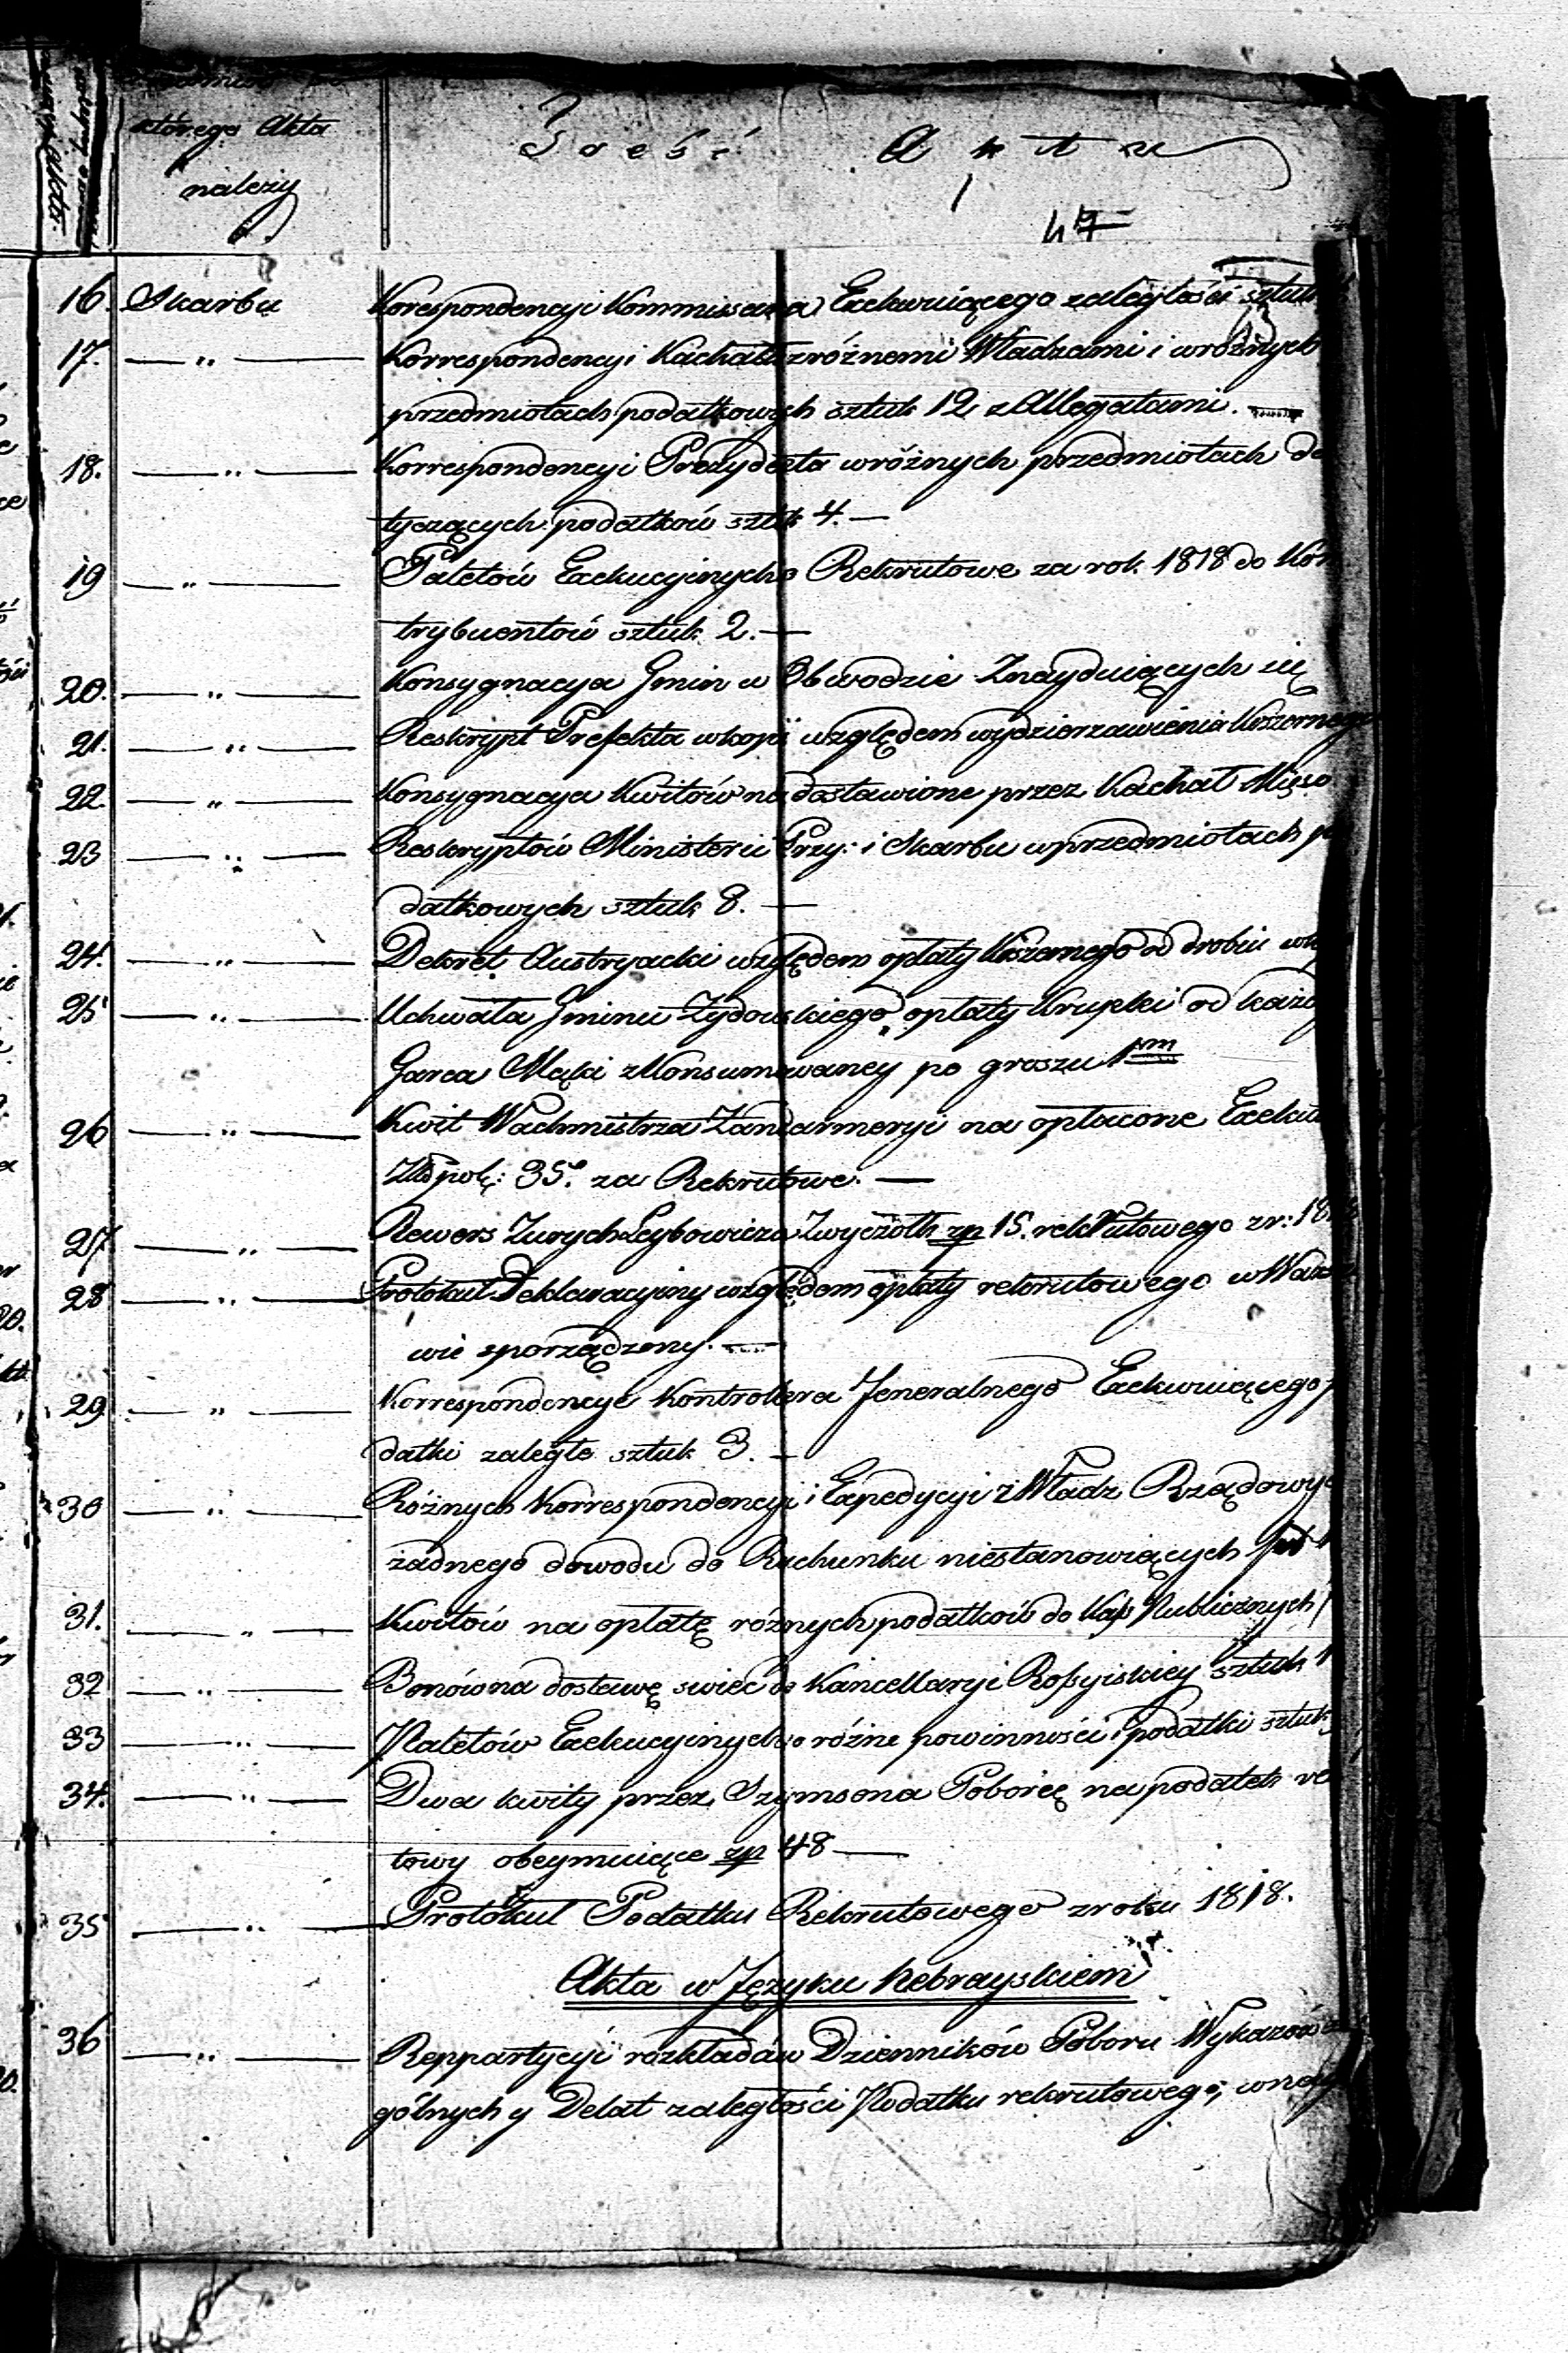 którego Akta
należy
Treść Aktu
47
16. Skarbu Korespondencyi Kommissarza Exekwuiącego zaległości sztuk
13
17. — „ — Korrespondencyi Kachału z różnemi Władzami i w różnych
przedmiotach podatkowych sztuk 12 z Allegatami. —
18. — „ — Korrespondencyi Prezydenta w różnych przedmiotach do
tyczących podatków sztuk 4. —
19 — „ — Paletów Exekucyinych o Rekrutowe za rok 1818 do Kon
trybuentów sztuk 2. —
20. — „ — Konsygnacya Gmin w Obwodzie Znayduiących się
21. — „ — Reskrypt Prefekta w kopii względem wydzierzawienia Koszernego
22. — „ — Konsygnacya Kwitów na dostawione przez Kachał Mięso
23 — „ — Reskryptów Ministerii Przy: i Skarbu w przedmiotach po
datkowych sztuk 8. —
24. — „ — Dekret Austryacki względem opłaty Koszernego od drobiu
25 — „ — Uchwała Gminu Zydowskiego opłaty krupki od każd
Garca Mąki zkonsumowaney po groszu 1wm
26 — „ — Kwit Wachmistrza Zandarmeryi na opłacone Exeku
Złł pol: 35. za Rekrutowe. —
27. — „ — Rewers Leybowicza zp 15. rekrutowego z r: 18
28 — „ — Protokuł Deklaracyiny względem opłaty rekrutowego w Warsza
wie sporządzony. —
29. — „ — Korrespondencye Kontrollera Jeneralnego Exekwuiącego p
datki zaległe sztuk 3. —
30 — „ — Różnych Korrespondencyi i Expedycyi z Władz Rządowyc
żadnego dowodu do Rachunku niestanowiących
31. — „ — Kwitów na opłatę różnych podatków do Kass Publicznych
32 — „ — Bonów na dostawę swiec do Kancellaryi Rossyiskiey sztuk 1
33 — „ — Paletów Exekucyinych o różne powinności i podatki sztuk
34. — „ — Dwa kwity przez Szymsona Poborcę na podatek re
towy obeymuiące zp 48 —
35 — „ — Protokuł Podatku Rekrutowego z roku 1818.
Akta w Języku hebrayskiem
36 — „ — Reppartycyi rozkładów Dzienników Poboru Wykazów
gólnych y Delat zaległości Podatku rekrutowego,